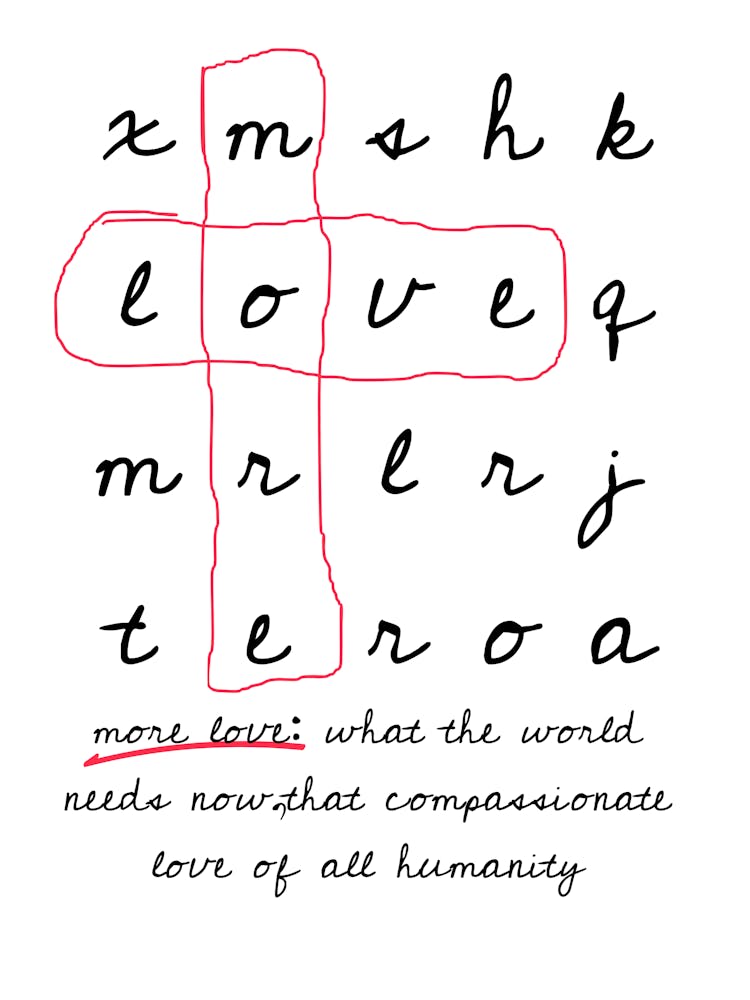 x m s h k
l o v e q
m r l r j
t e r o a
more love: what the world
needs now, that compassionate
love of all humanity